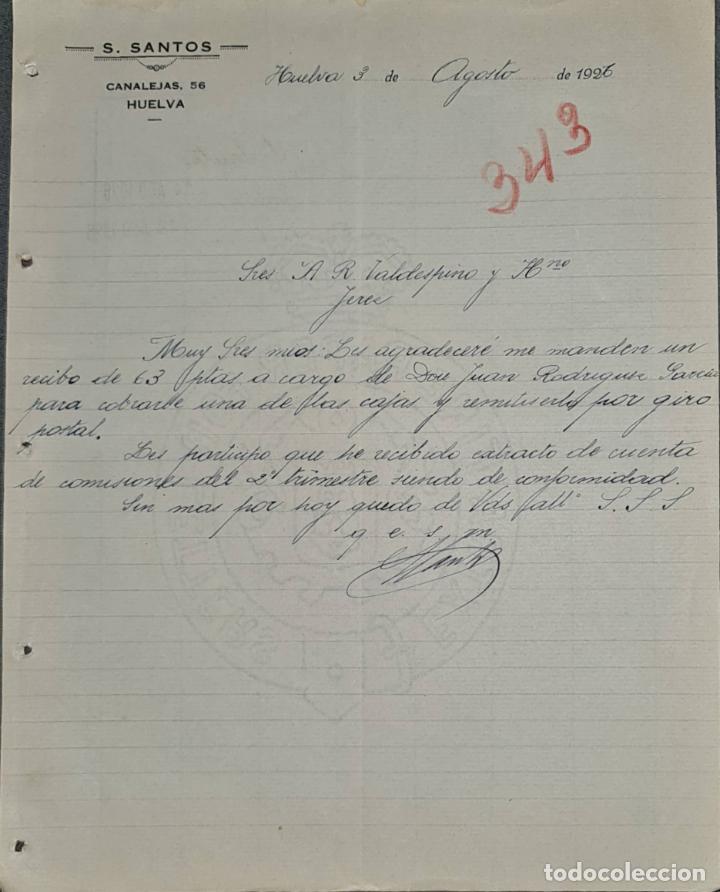 S. SANTOS
CANALEJAS, 56
HUELVA
Huelva 3 de Agosto de 1926
343
Sres A. R. Valdespino y Hno
Jerez
Muy Sres mios: Les agradeceré me manden un
recibo de 63 ptas a cargo de Don Juan Rodriguez Garcia
para cobrarle una de las cajas y remitirselo por giro
postal.
Les participo que he recibido extracto de cuenta
de comisiones del 2º trimestre siendo de conformidad.
Sin mas por hoy quedo de Vds S. S. S
q e. s. m
Santos
todocoleccion.net